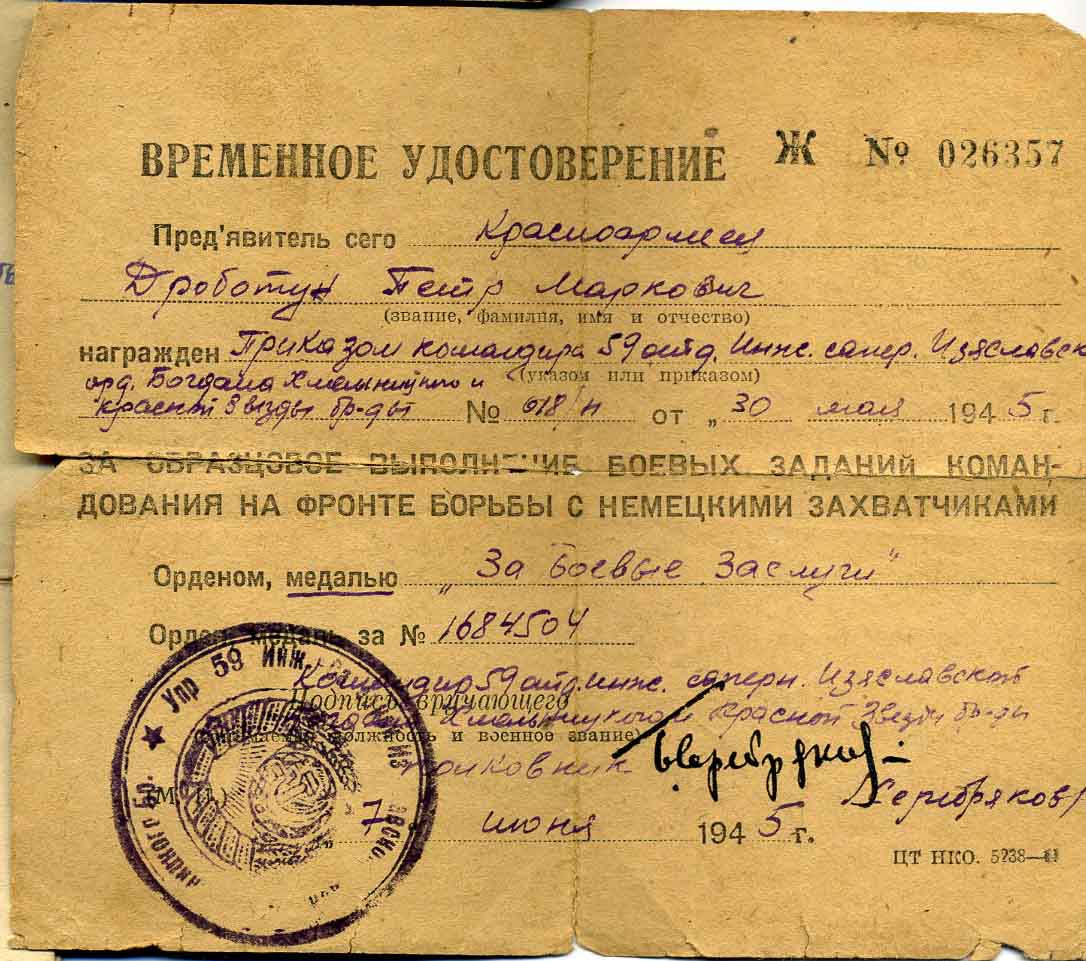 ВРЕМЕННОЕ УДОСТОВЕРЕНИЕ Ж № 026357
Пред'явитель сего Красноармеец
Дроботун Петр Маркович
(звание, фамилия, имя и отчество)
награжден Приказом командира 59 отд. Инж. сапер. Изяславск
орд. Богдана Хмельницкого и (указом или приказом)
красной Звезды бр-ды № 018/н от „30 мая 1945 г.
ЗА ОБРАЗЦОВОЕ ВЫПОЛНЕНИЕ БОЕВЫХ ЗАДАНИЙ КОМАН-
ДОВАНИЯ НА ФРОНТЕ БОРЬБЫ С НЕМЕЦКИМИ ЗАХВАТЧИКАМИ
Орденом, медалью „За Боевые Заслуги"
Орден, медаль за № 1684504
Командир 59 отд. инж. саперн. Изяславской
Подпись вручающего
Хмельницкого и Красной Звезды бр-ды
должность и военное звание)
полковник Серебряков
(М. П.)
7 июня 1945 г.
ЦТ НКО. 5238—
★ Упр 59 Инж.